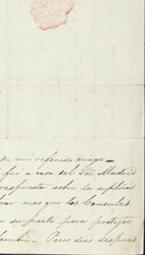 mi referido viage
fué a casa del Sor Madrid
respuesta sobre la suplica
mas que los Consules
su parte para proteger
Pocos dias despues